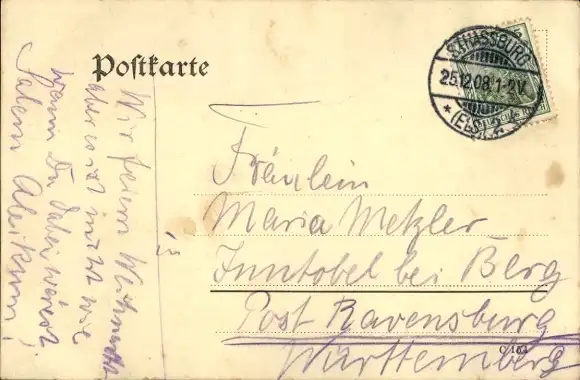 Postkarte
STRASSBURG
25.12.08.1-2V.
* (ELS.) *
Fräulein
Maria Metzler
Inntobel bei Berg
Post Ravensburg
Württemberg
Wir feiern Weihnacht
aber nicht wie
wenn Du dabei wärest.
Salem Aleikum!